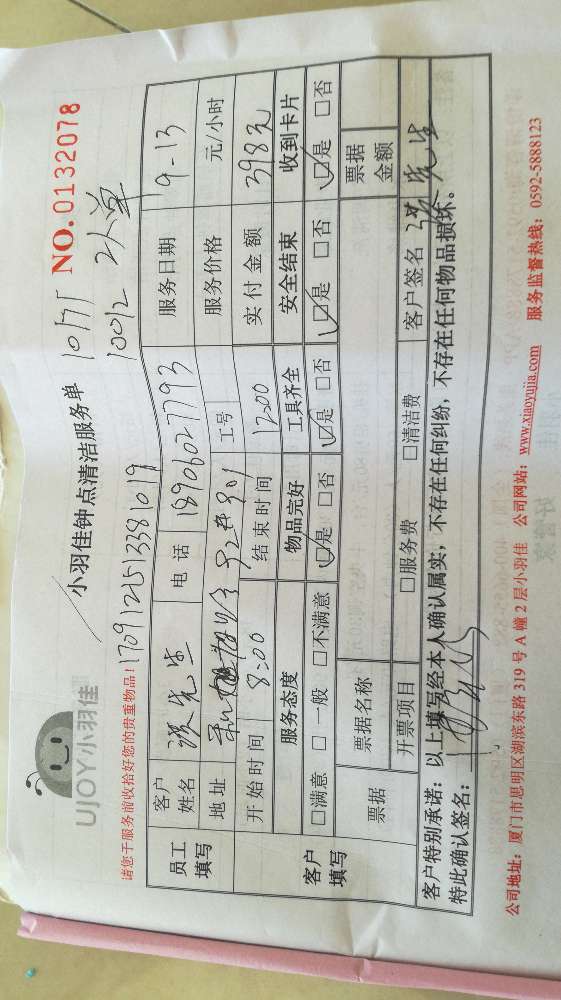 UJOY小羽佳
小羽佳钟点清洁服务单
NO.0132078
100元 2人单
请您于服务前收拾好您的贵重物品！
1709125133381019
员工填写
客户姓名 张先生 电话 18906027793 服务日期 9-13
地址 2#901 工号 服务价格 元/小时
开始时间 8:00 结束时间 12:00 实付金额 398元
客户填写
服务态度 物品完好 工具齐全 安全结束 收到卡片
□满意 □一般 □不满意 □是 □否 □是 □否 □是 □否 □是 □否
票据 票据名称 票据金额
开票项目 □服务费 □清洁费 客户签名 张先生
客户特别承诺：以上填写经本人确认属实，不存在任何纠纷，不存在任何物品损坏。
特此确认签名：
公司地址：厦门市思明区湖滨东路319号A幢2层小羽佳 公司网站：www.xiaoyujia.com 服务监督热线：0592-5888123